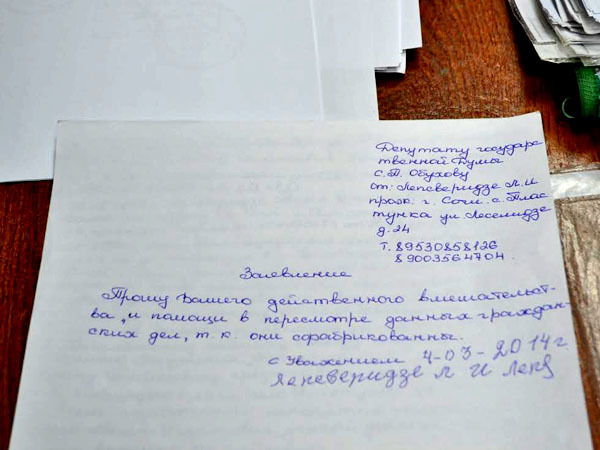 Депутату государс
твенной Думы
С.П. Обухову
от: Лепсверидзе Л.И
прож. г. Сочи с. Плас
тунка ул Леселидзе
д. 24
т. 89530858126
89003564704.
Заявление
Прошу Вашего действенного вмешательст-
ва, и помощи в пересмотре данных граждан-
ских дел, т.к. они сфабрикованны.
с Уважением 4-03-2014 г.
Лепсверидзе Л И